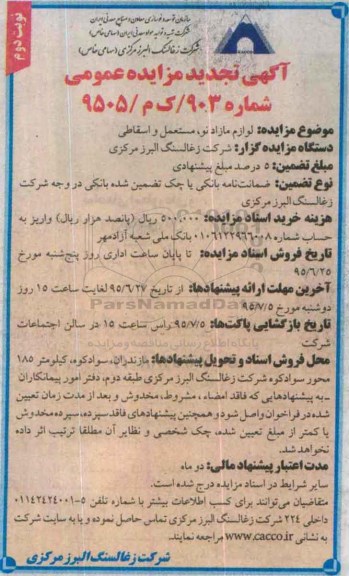 نوبت دوم
سازمان توسعه و نوسازی معادن و صنایع معدنی ایران
شرکت تهیه و تولید مواد معدنی ایران (سهامی خاص)
شرکت زغالسنگ البرز مرکزی (سهامی خاص)
آگهی تجدید مزایده عمومی
شماره ۹۰۳/ک م/۹۵۰۵
موضوع مزایده: لوازم مازاد نو، مستعمل و اسقاطی
دستگاه مزایده گزار: شرکت زغالسنگ البرز مرکزی
مبلغ تضمین: ۵ درصد مبلغ پیشنهادی
نوع تضمین: ضمانت‌نامه بانکی یا چک تضمین شده بانکی در وجه شرکت
زغالسنگ البرز مرکزی
هزینه خرید اسناد مزایده: ۵۰۰,۰۰۰ ریال (پانصد هزار ریال) واریز به
حساب شماره ۰۱۰۶۱۲۲۹۶۶۰۰۸ بانک ملی شعبه آزادمهر
تاریخ فروش اسناد مزایده: تا پایان ساعت اداری روز پنج‌شنبه مورخ
۹۵/۶/۲۵
آخرین مهلت ارائه پیشنهادها: از تاریخ ۹۵/۶/۲۷ لغایت ساعت ۱۵ روز
دوشنبه مورخ ۹۵/۷/۵
ParsNamadData
تاریخ بازگشایی پاکت‌ها: ۹۵/۷/۵ راس ساعت ۱۵ در سالن اجتماعات
شرکت
محل فروش اسناد و تحویل پیشنهادها: مازندران، سوادکوه، کیلومتر ۱۸۵
محور سوادکوه شرکت زغالسنگ البرز مرکزی طبقه دوم، دفتر امور پیمانکاران
-به پیشنهادهایی که فاقد امضاء، مشروط، مخدوش و بعد از مدت زمان تعیین
شده در فراخوان واصل شود و همچنین پیشنهادهای فاقد سپرده، سپرده مخدوش
یا کمتر از مبلغ تعیین شده، چک شخصی و نظایر آن مطلقا ترتیب اثر داده
نخواهد شد.
مدت اعتبار پیشنهاد مالی: دو ماه
سایر شرایط در اسناد مزایده درج شده است.
متقاضیان می‌توانند برای کسب اطلاعات بیشتر با شماره تلفن ۵-۰۱۱۴۲۴۲۴۰۰۱
داخلی ۲۲۴ شرکت زغالسنگ البرز مرکزی تماس حاصل نموده و یا به سایت شرکت
به نشانی www.cacco.ir مراجعه نمایند.
شرکت زغالسنگ البرز مرکزی